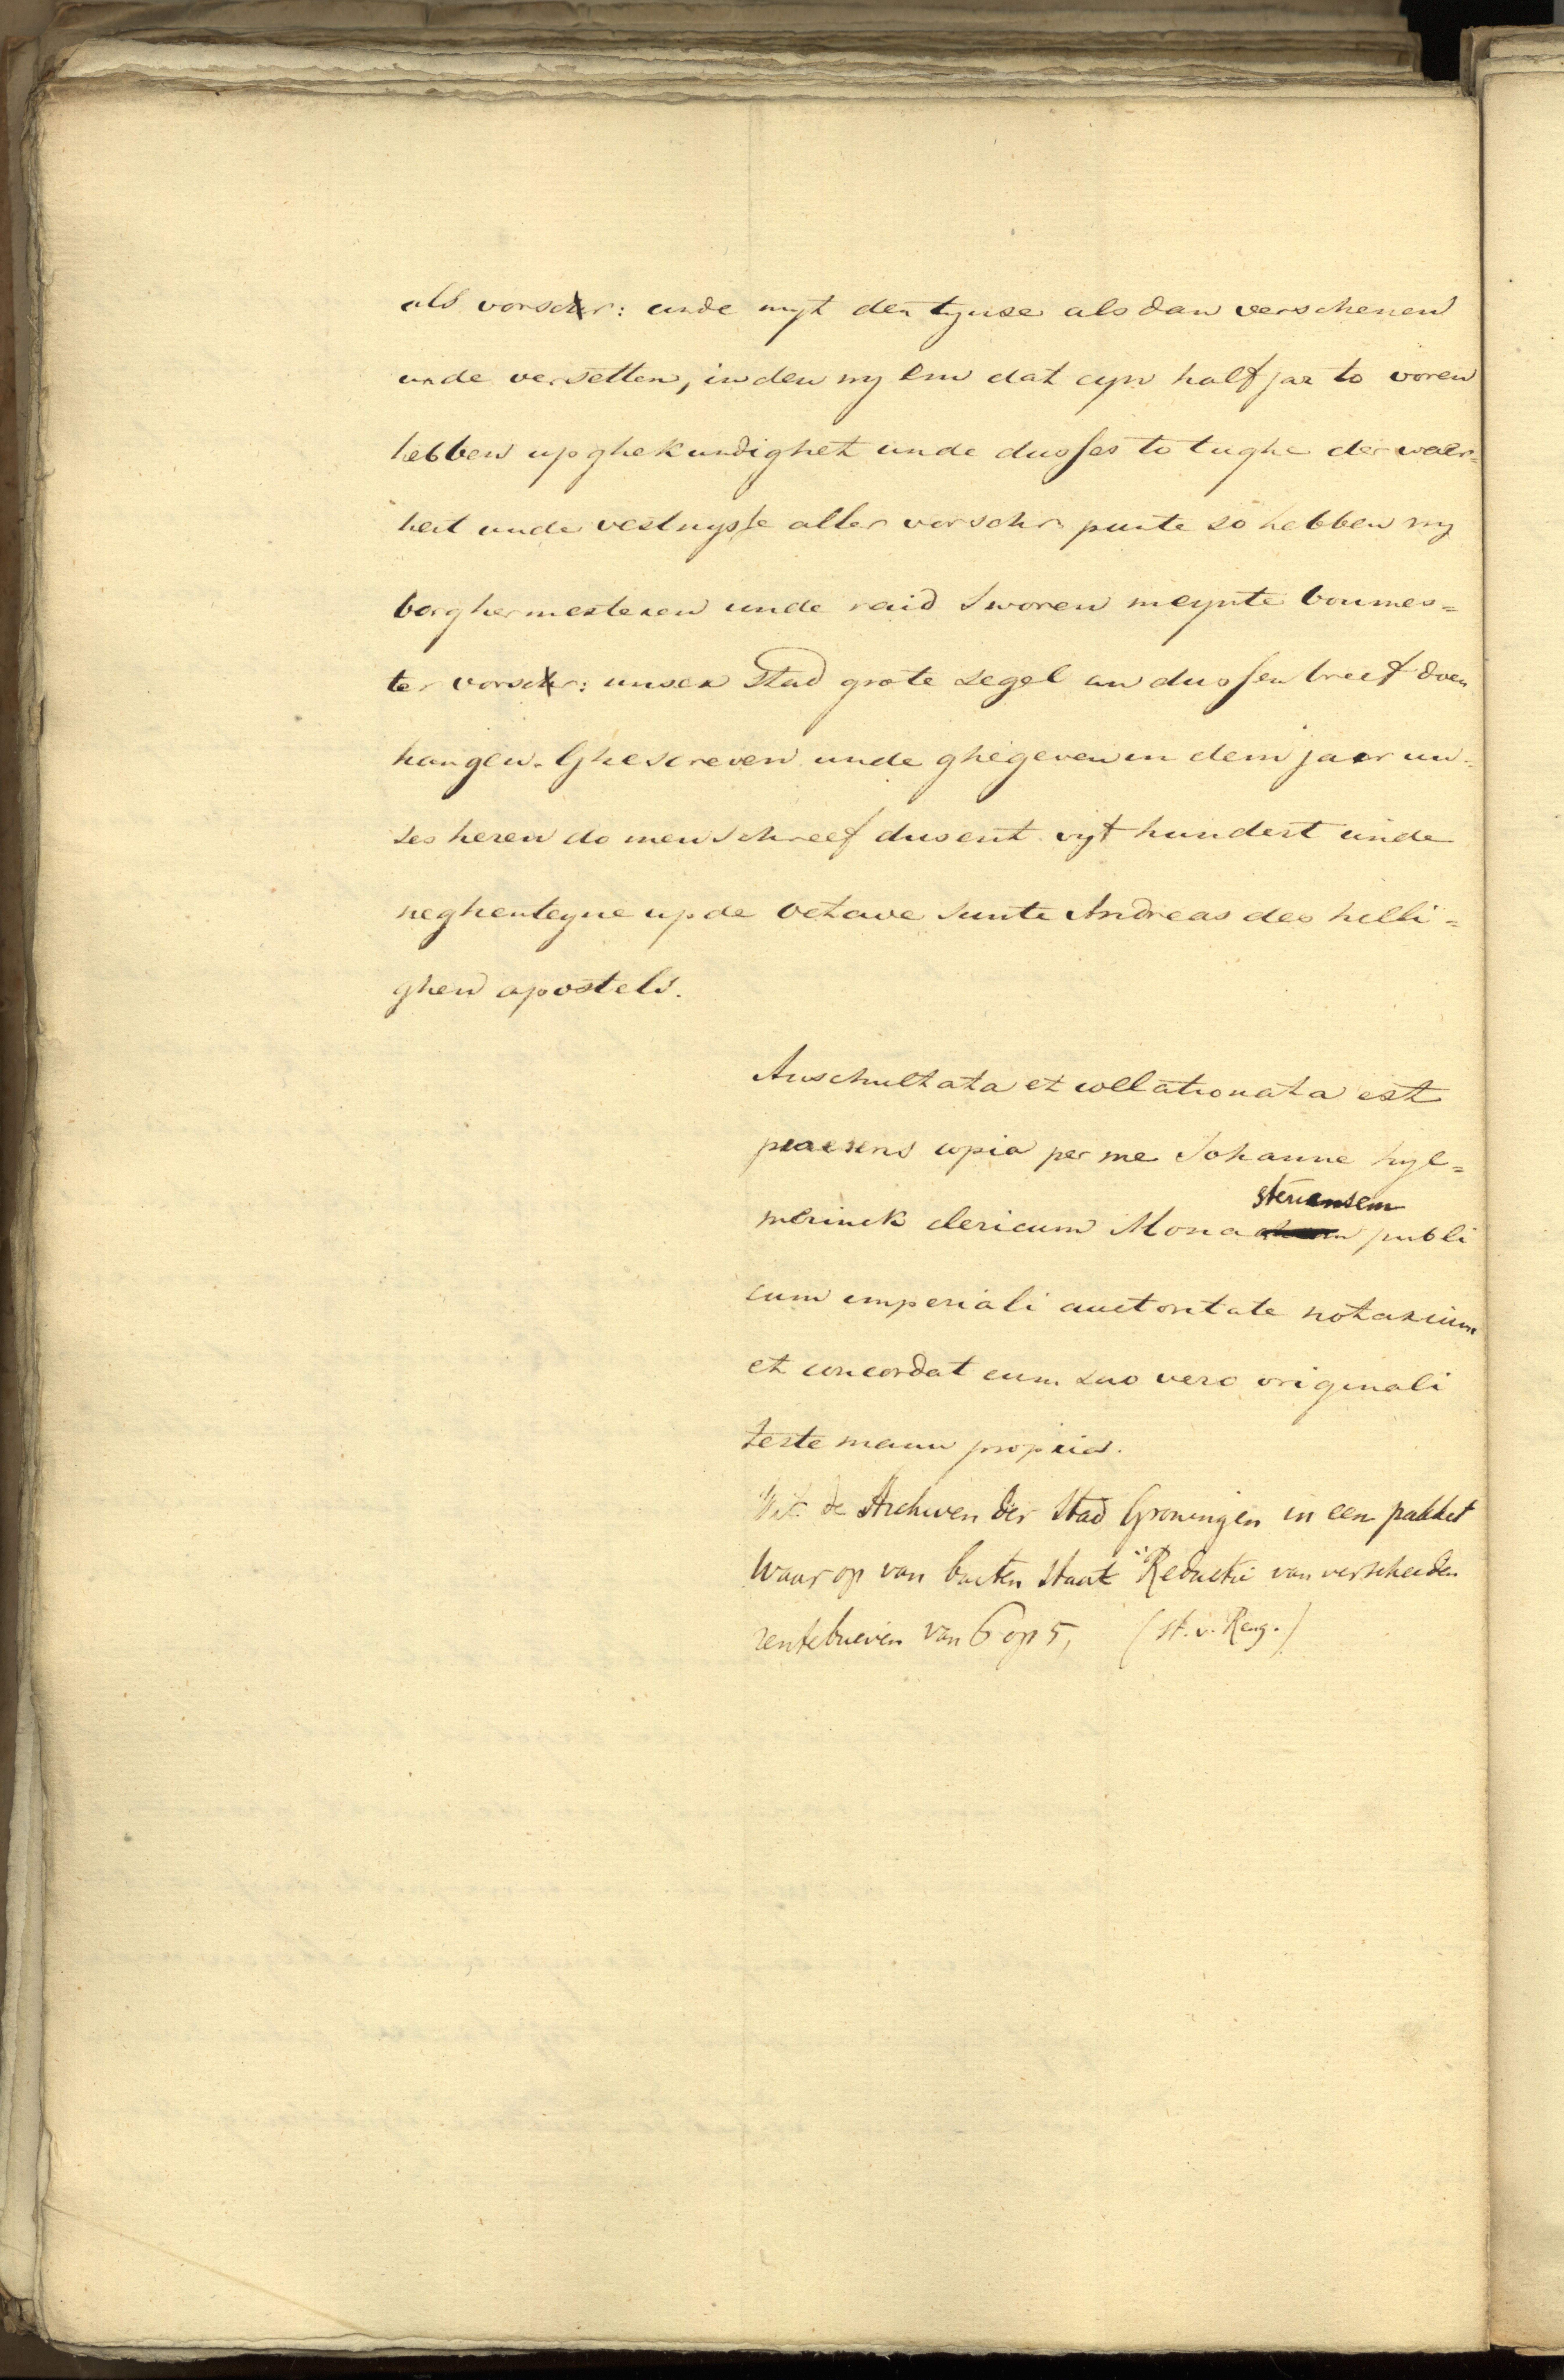 als vorschr: unde myt den tynse als dan verschenen
unde versetten, inden wy em dat eyn half jaer to voren
hebben up ghekundighet unde dusses to tughe der waer=
heit unde vestnysse aller vorschr punte so hebben wy
borghermesteren unde raid sworen meynte boumes=
ter vorschr: unsen Stad grote segel an dussen breef doen
hangen. Ghescreven unde ghegeven in dem jaer un=
ses heren do men schreef dusent vyf hundert unde
neghenteyne up de octave sunte Andreas des helli=
ghen apostels.
Auschultata et collationata est
praesens copia per me Johanne hyl=
merinck clericum Monasteriensem publi
cum imperiali auctoritate notarium
et concordat cum suo vero originali
teste manu propria.
Uit de Archiven der Stad Groningen in een pakket
waar op van buiten staat "Reductie van verscheiden
rentebrieven van 6 op 5, (st. v. Reng.)